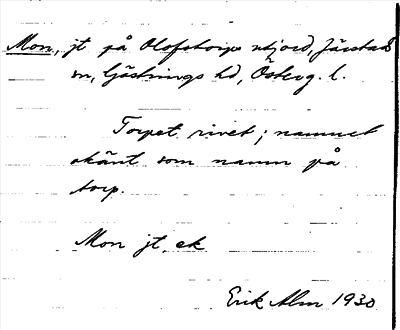 Mon, jt på Olofstorps utjord, Järstads
sn, Göstrings hd, Österg. l.
Torpet rivet; namnet
okänt som namn på
torp.
Mon jt, ek
Erik Alm 1930